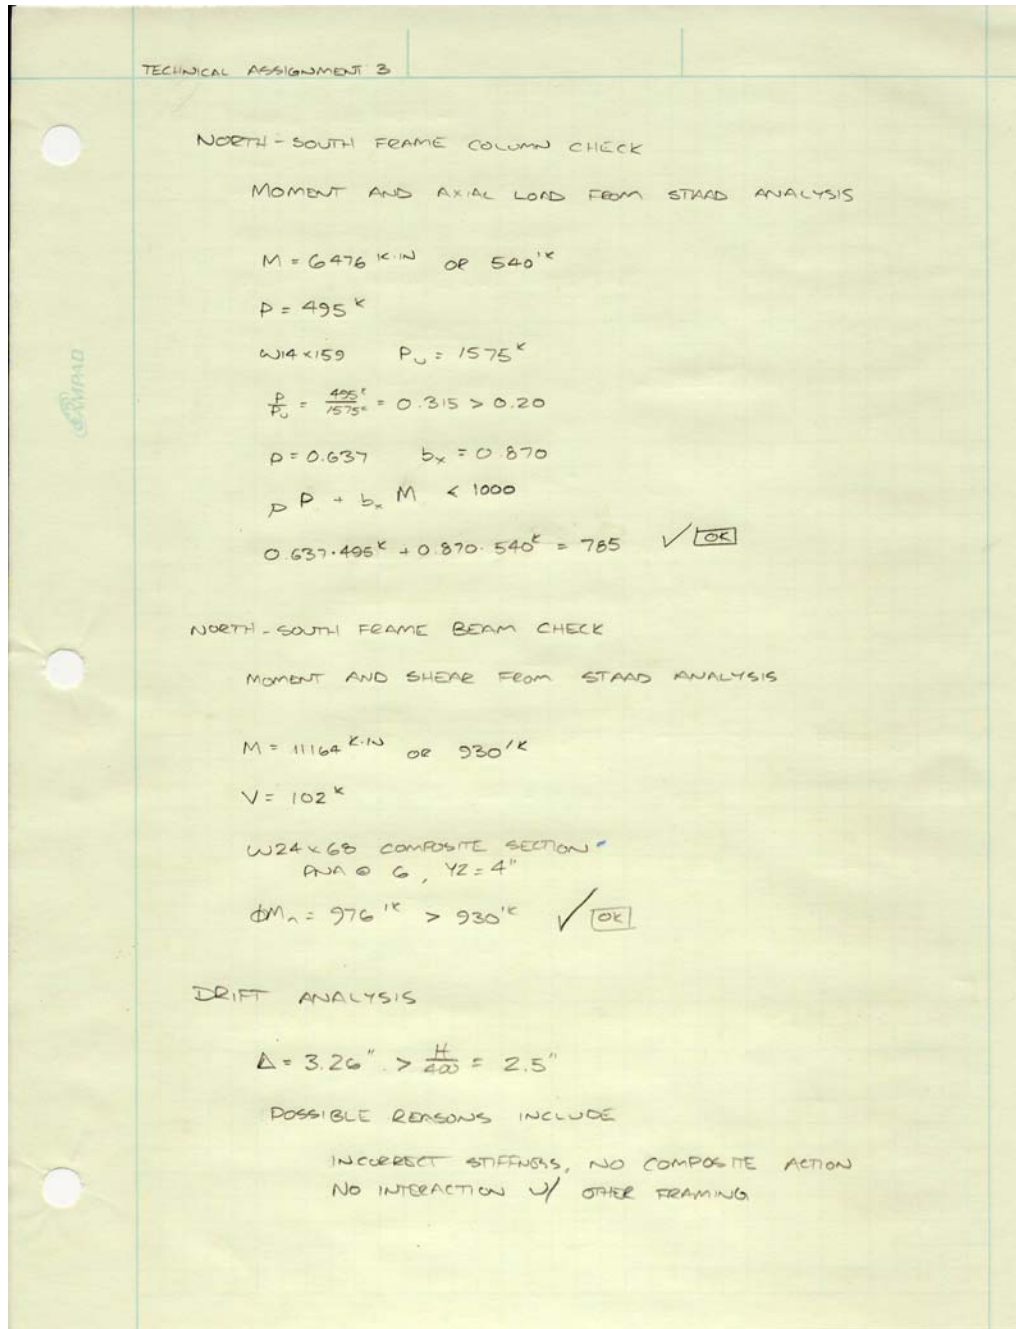 TECHNICAL ASSIGNMENT 3
NORTH-SOUTH FRAME COLUMN CHECK
MOMENT AND AXIAL LOAD FROM STAAD ANALYSIS
M = 6476 K·IN OR 540'K
P = 495 K
W14×159 Pu = 1575 K
P/Pu = 495K/1575K = 0.315 > 0.20
p = 0.637 bx = 0.870
p P + bx M < 1000
0.637·495K + 0.870·540K = 785 ✓ OK
NORTH-SOUTH FRAME BEAM CHECK
MOMENT AND SHEAR FROM STAAD ANALYSIS
M = 11164 K·IN OR 930'K
V = 102 K
W24×68 COMPOSITE SECTION
PNA @ 6, Y2 = 4"
ϕMn = 976'K > 930'K ✓ OK
DRIFT ANALYSIS
Δ = 3.26" > H/400 = 2.5"
POSSIBLE REASONS INCLUDE
INCORRECT STIFFNESS, NO COMPOSITE ACTION
NO INTERACTION W/ OTHER FRAMING
AMPAD